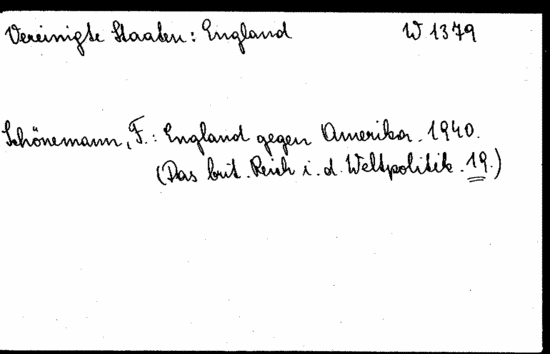 Vereinigte Staaten: England W 1379
Schönemann, F.: England gegen Amerika. 1940.
(Das brit. Reich i. d. Weltpolitik. 19.)